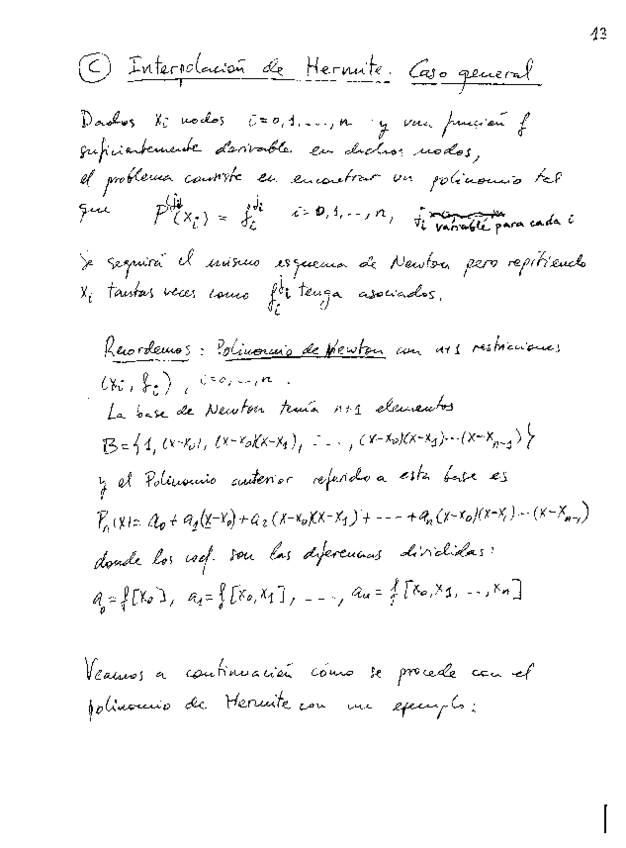 13
C Interpolación de Hermite. Caso general
Dados xi nodos i=0,1,...,n y una función f
suficientemente derivable en dichos nodos,
el problema consiste en encontrar un polinomio tal
que P^(ji)(xi) = fi^ji i=0,1,..,n, ji variable para cada i
Se seguirá el mismo esquema de Newton pero repitiendo
xi tantas veces como fi^ji tenga asociados.
Recordemos: Polinomio de Newton con n+1 restricciones
(xi, fi), i=0,..,n.
La base de Newton tenía n+1 elementos
B={1, (x-x0), (x-x0)(x-x1), ..., (x-x0)(x-x1)...(x-xn-1)}
y el Polinomio anterior referido a esta base es
Pn(x)= a0+a1(x-x0)+a2(x-x0)(x-x1)+---+an(x-x0)(x-x1)...(x-xn-1)
donde los coef. son las diferencias divididas:
a0=f[x0], a1=f[x0,x1], ---, an=f[x0,x1,..,xn]
Veamos a continuación cómo se procede con el
polinomio de Hermite con un ejemplo: